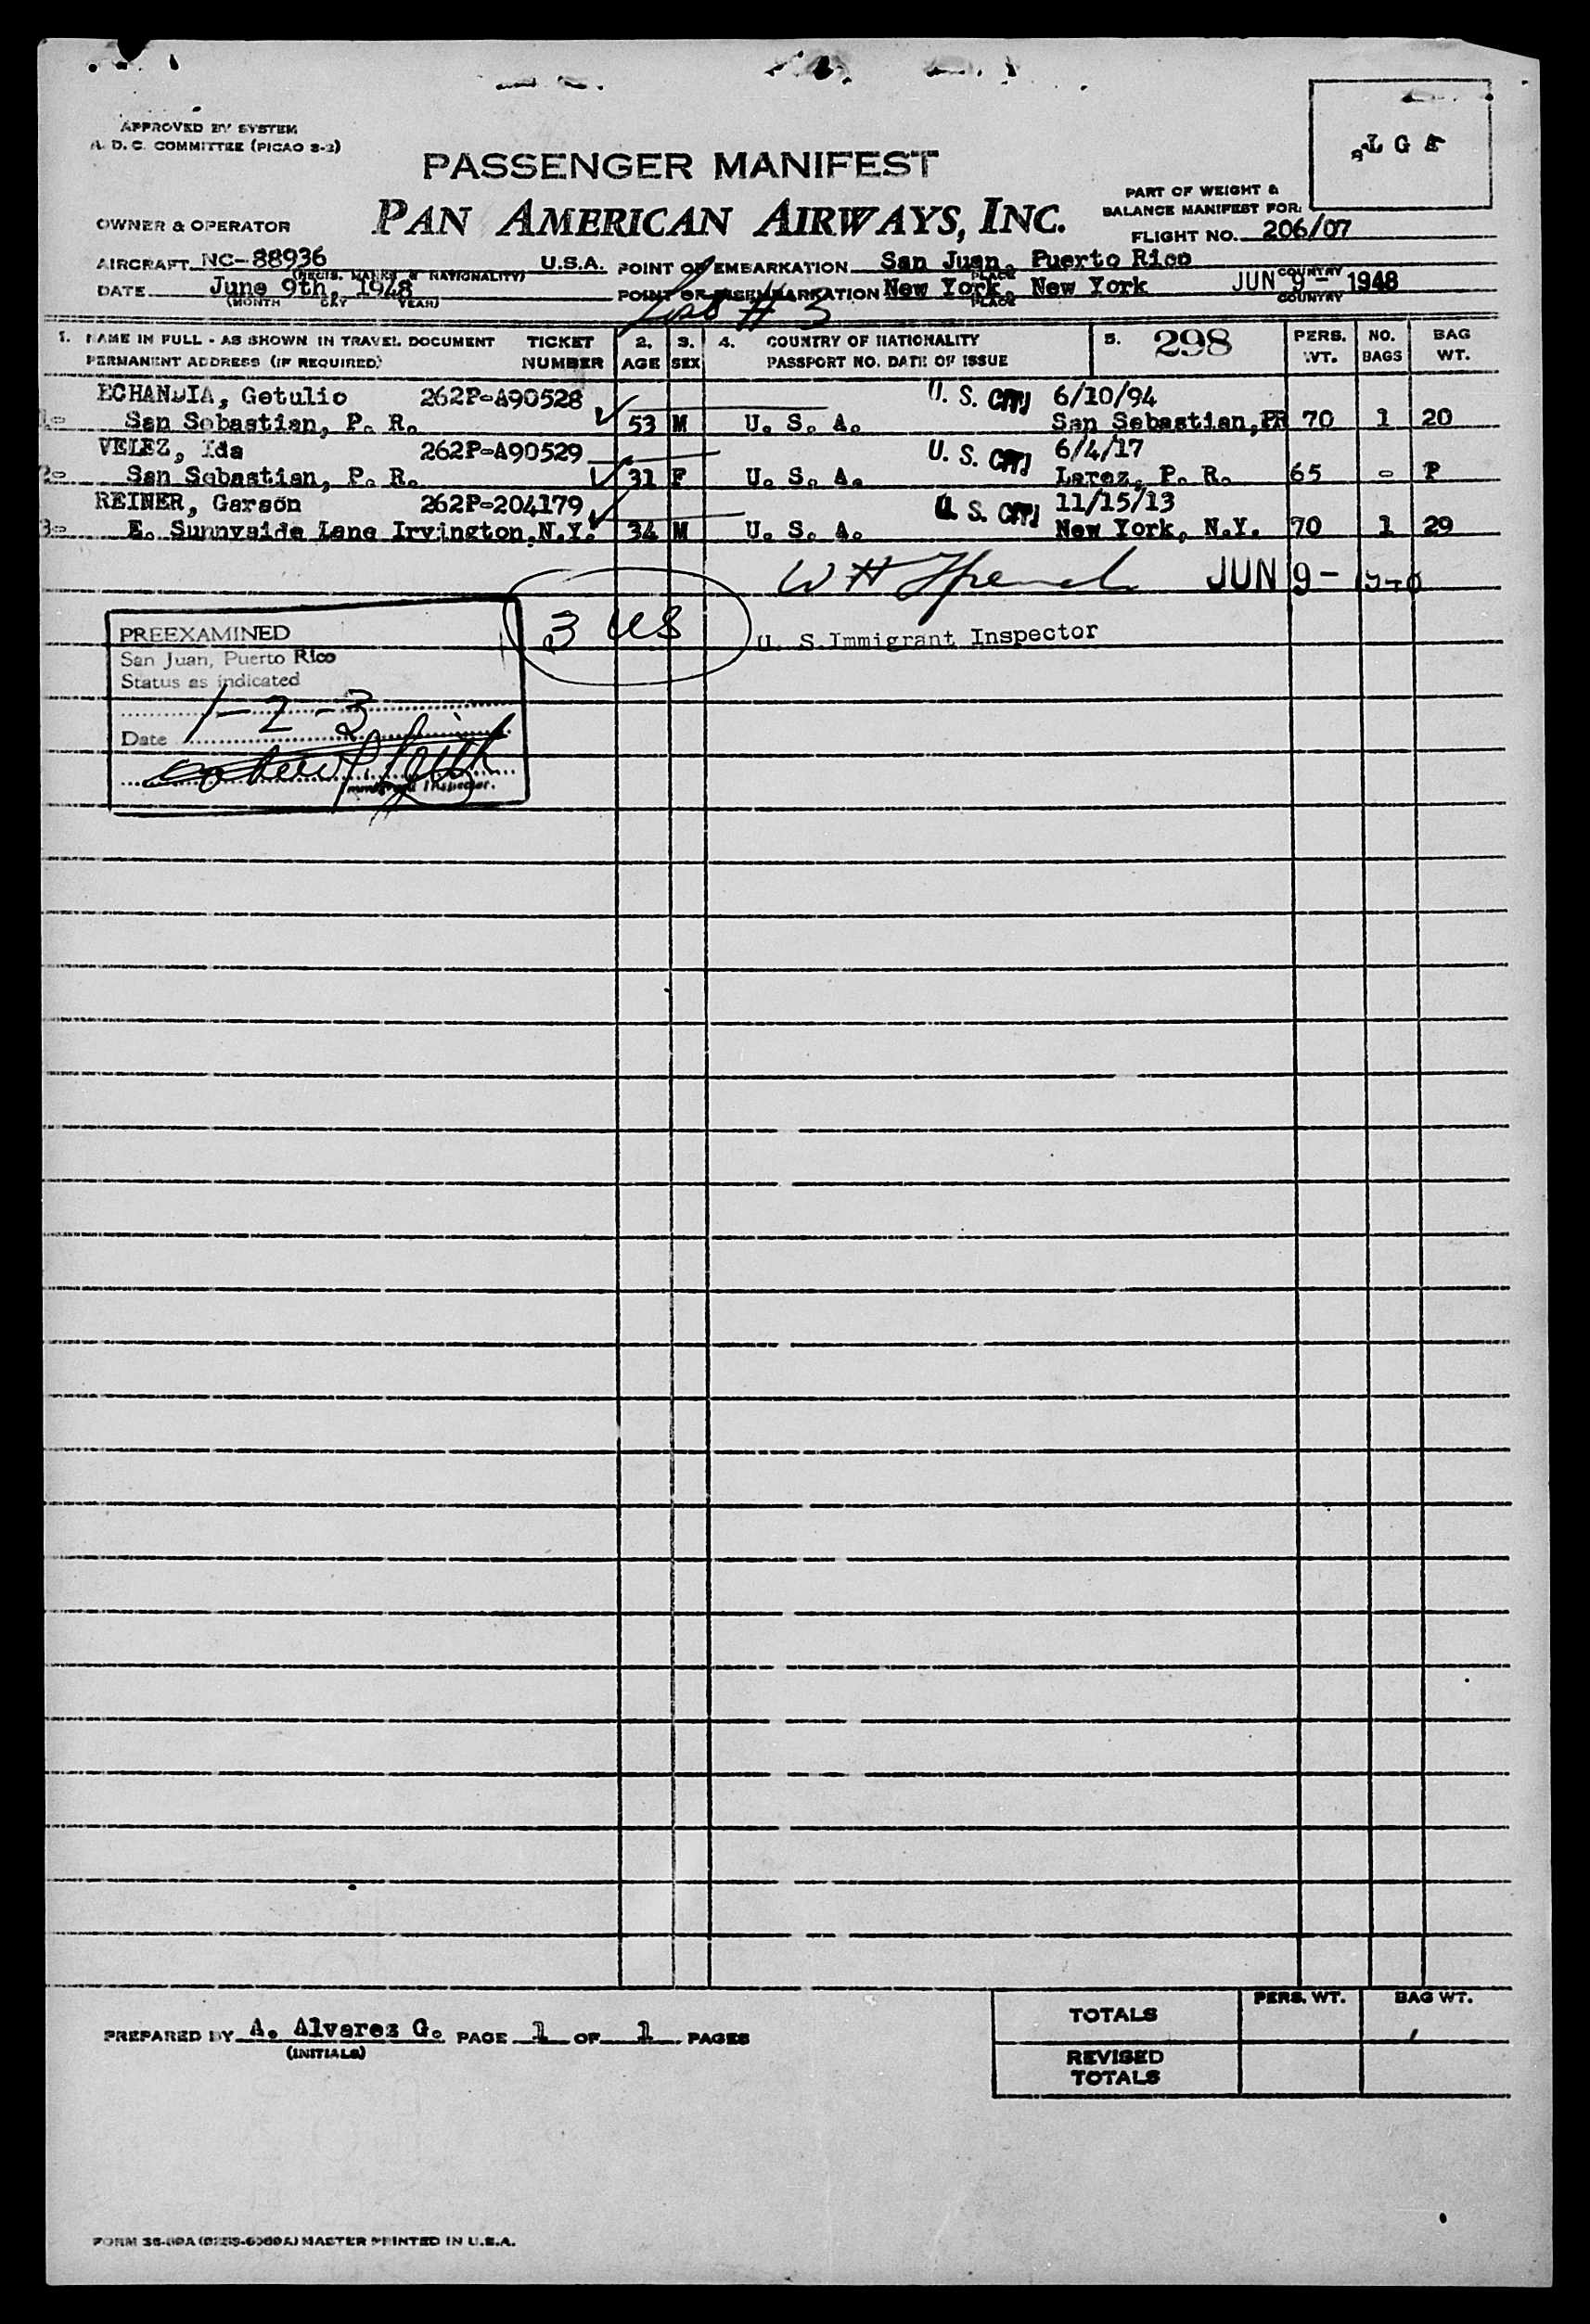 APPROVED BY SYSTEM
A. D. C. COMMITTEE (PICAO S-2)
LGA
PASSENGER MANIFEST
PAN AMERICAN AIRWAYS, INC.
PART OF WEIGHT &
BALANCE MANIFEST FOR:
OWNER & OPERATOR
FLIGHT NO. 206/07
AIRCRAFT NC-88936 U.S.A. POINT OF EMBARKATION San Juan, Puerto Rico
(REGIS. MARKS & NATIONALITY) PLACE COUNTRY
DATE June 9th, 1948 POINT OF DISEMBARKATION New York, New York JUN 9 - 1948
(MONTH DAY YEAR) PLACE COUNTRY
# 3
1. NAME IN FULL - AS SHOWN IN TRAVEL DOCUMENT TICKET 2. 3. 4. COUNTRY OF NATIONALITY 5. 298 PERS. NO. BAG
PERMANENT ADDRESS (IF REQUIRED) NUMBER AGE SEX PASSPORT NO. DATE OF ISSUE WT. BAGS WT.
ECHANDIA, Getulio 262P-A90528 U. S. CIT. 6/10/94
1- San Sebastian, P. R. 53 M U. S. A. San Sebastian,PR 70 1 20
VELEZ, Ida 262P-A90529 U. S. CIT. 6/4/17
2- San Sebastian, P. R. 31 F U. S. A. Larez, P. R. 65 - P
REINER, Garson 262P-204179 U. S. CIT. 11/15/13
3- E. Sunnyside Lane Irvington,N.Y. 34 M U. S. A. New York, N.Y. 70 1 29
W H JUN 9 - 1948
3 US
U. S.Immigrant Inspector
PREEXAMINED
San Juan, Puerto Rico
Status as indicated
1-2-3
Date
Immigrant Inspector.
PREPARED BY A. Alvarez G. PAGE 1 OF 1 PAGES
(INITIALS)
TOTALS PERS. WT. BAG WT.
REVISED
TOTALS
MASTER PRINTED IN U.S.A.